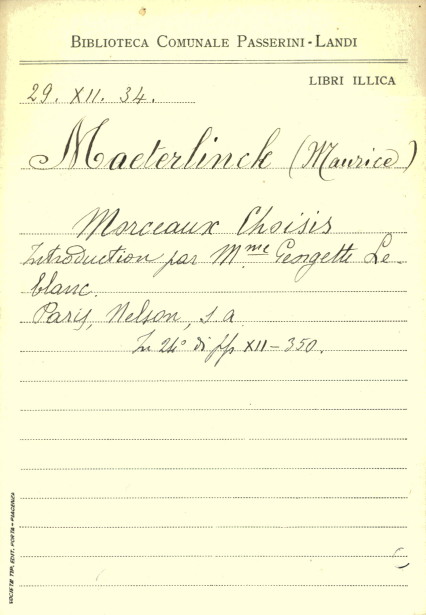 BIBLIOTECA COMUNALE PASSERINI-LANDI
LIBRI ILLICA
29. XII. 34.
Maeterlinck (Maurice)
Morceaux Choisis
Introduction par Mme Georgette Le-
blanc.
Paris, Nelson, s a
In 24° di pp XII-350.
SOCIETÀ TIP. EDIT. PORTA - PIACENZA